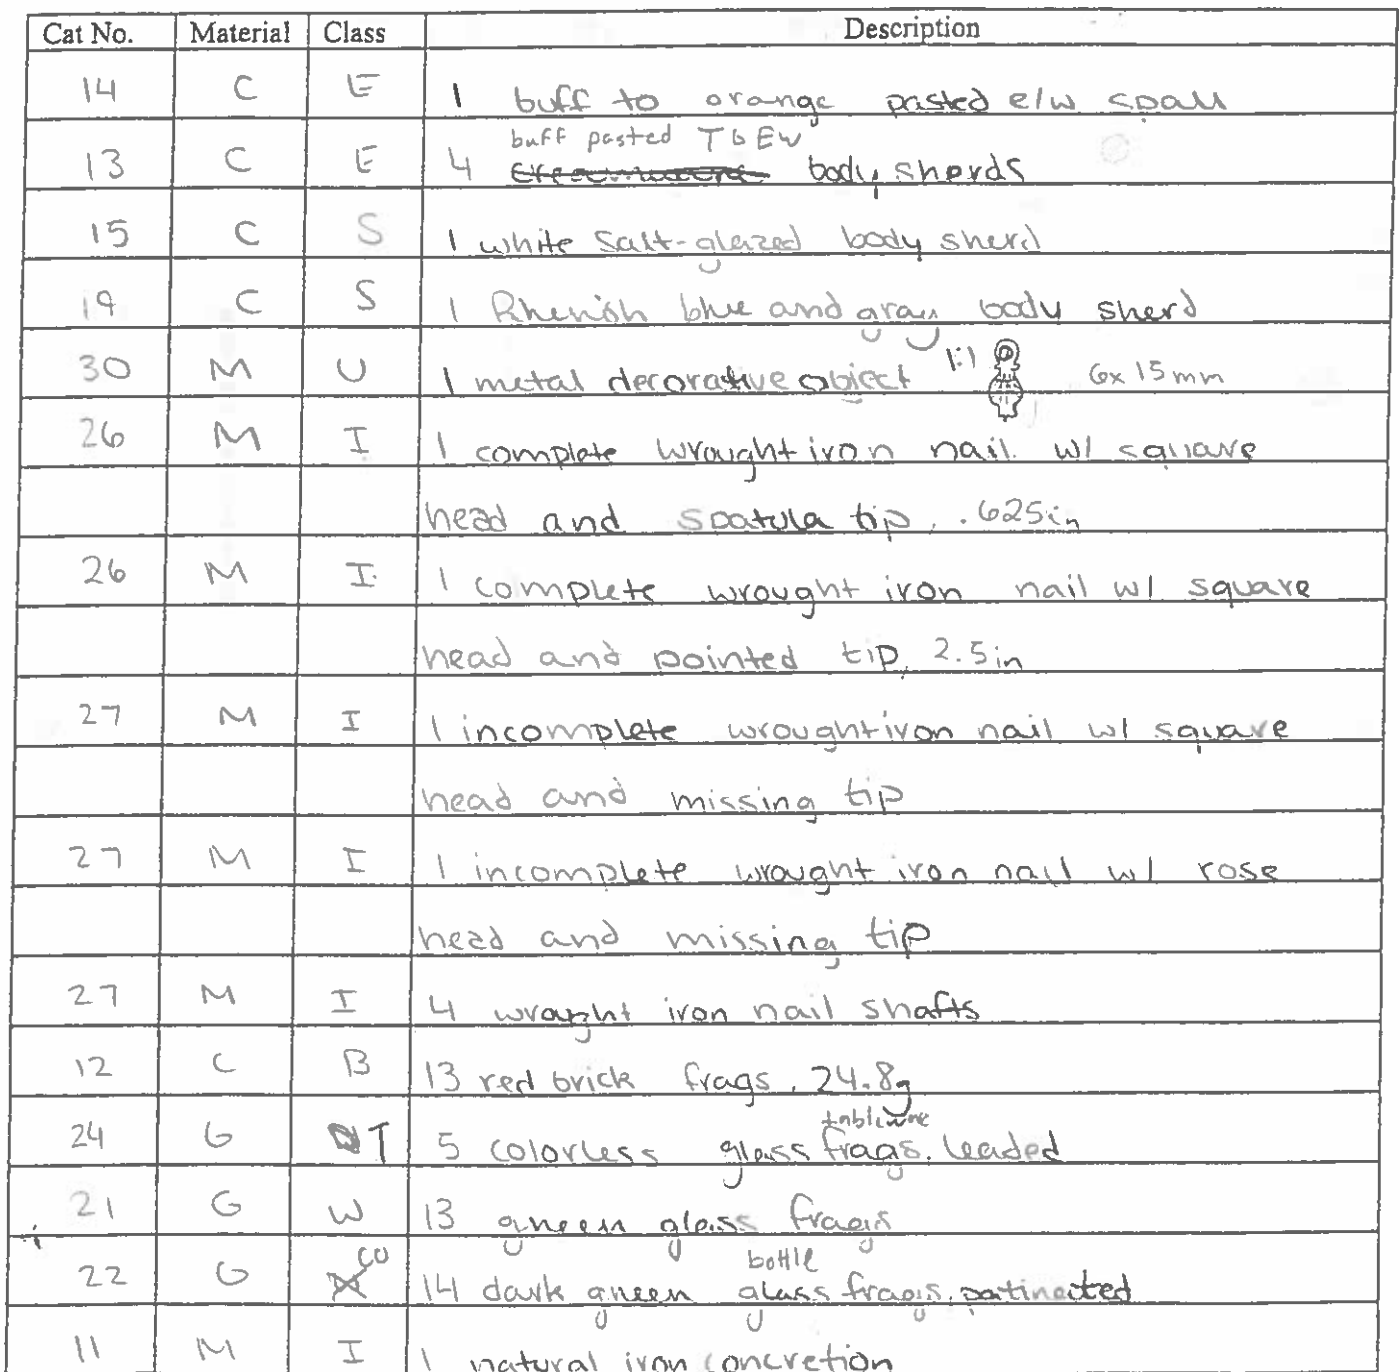 Cat No. Material Class Description
14 C E 1 buff to orange pasted e/w spall
buff pasted TGEW
13 C E 4 Creamware body sherds
15 C S 1 white salt-glazed body sherd
19 C S 1 Rhenish blue and gray body sherd
30 M U 1 metal decorative object 1:1 6x15mm
26 M I 1 complete wrought iron nail w/ square
head and spatula tip, .625in
26 M I 1 complete wrought iron nail w/ square
head and pointed tip, 2.5in
27 M I 1 incomplete wrought iron nail w/ square
head and missing tip
27 M I 1 incomplete wrought iron nail w/ rose
head and missing tip
27 M I 4 wrought iron nail shafts
12 C B 13 red brick frags, 24.8g
tableware
24 G T 5 colorless glass frags, leaded
21 G W 13 green glass frags
CU bottle
22 G 14 dark green glass frags, patinated
11 M I 1 natural iron concretion